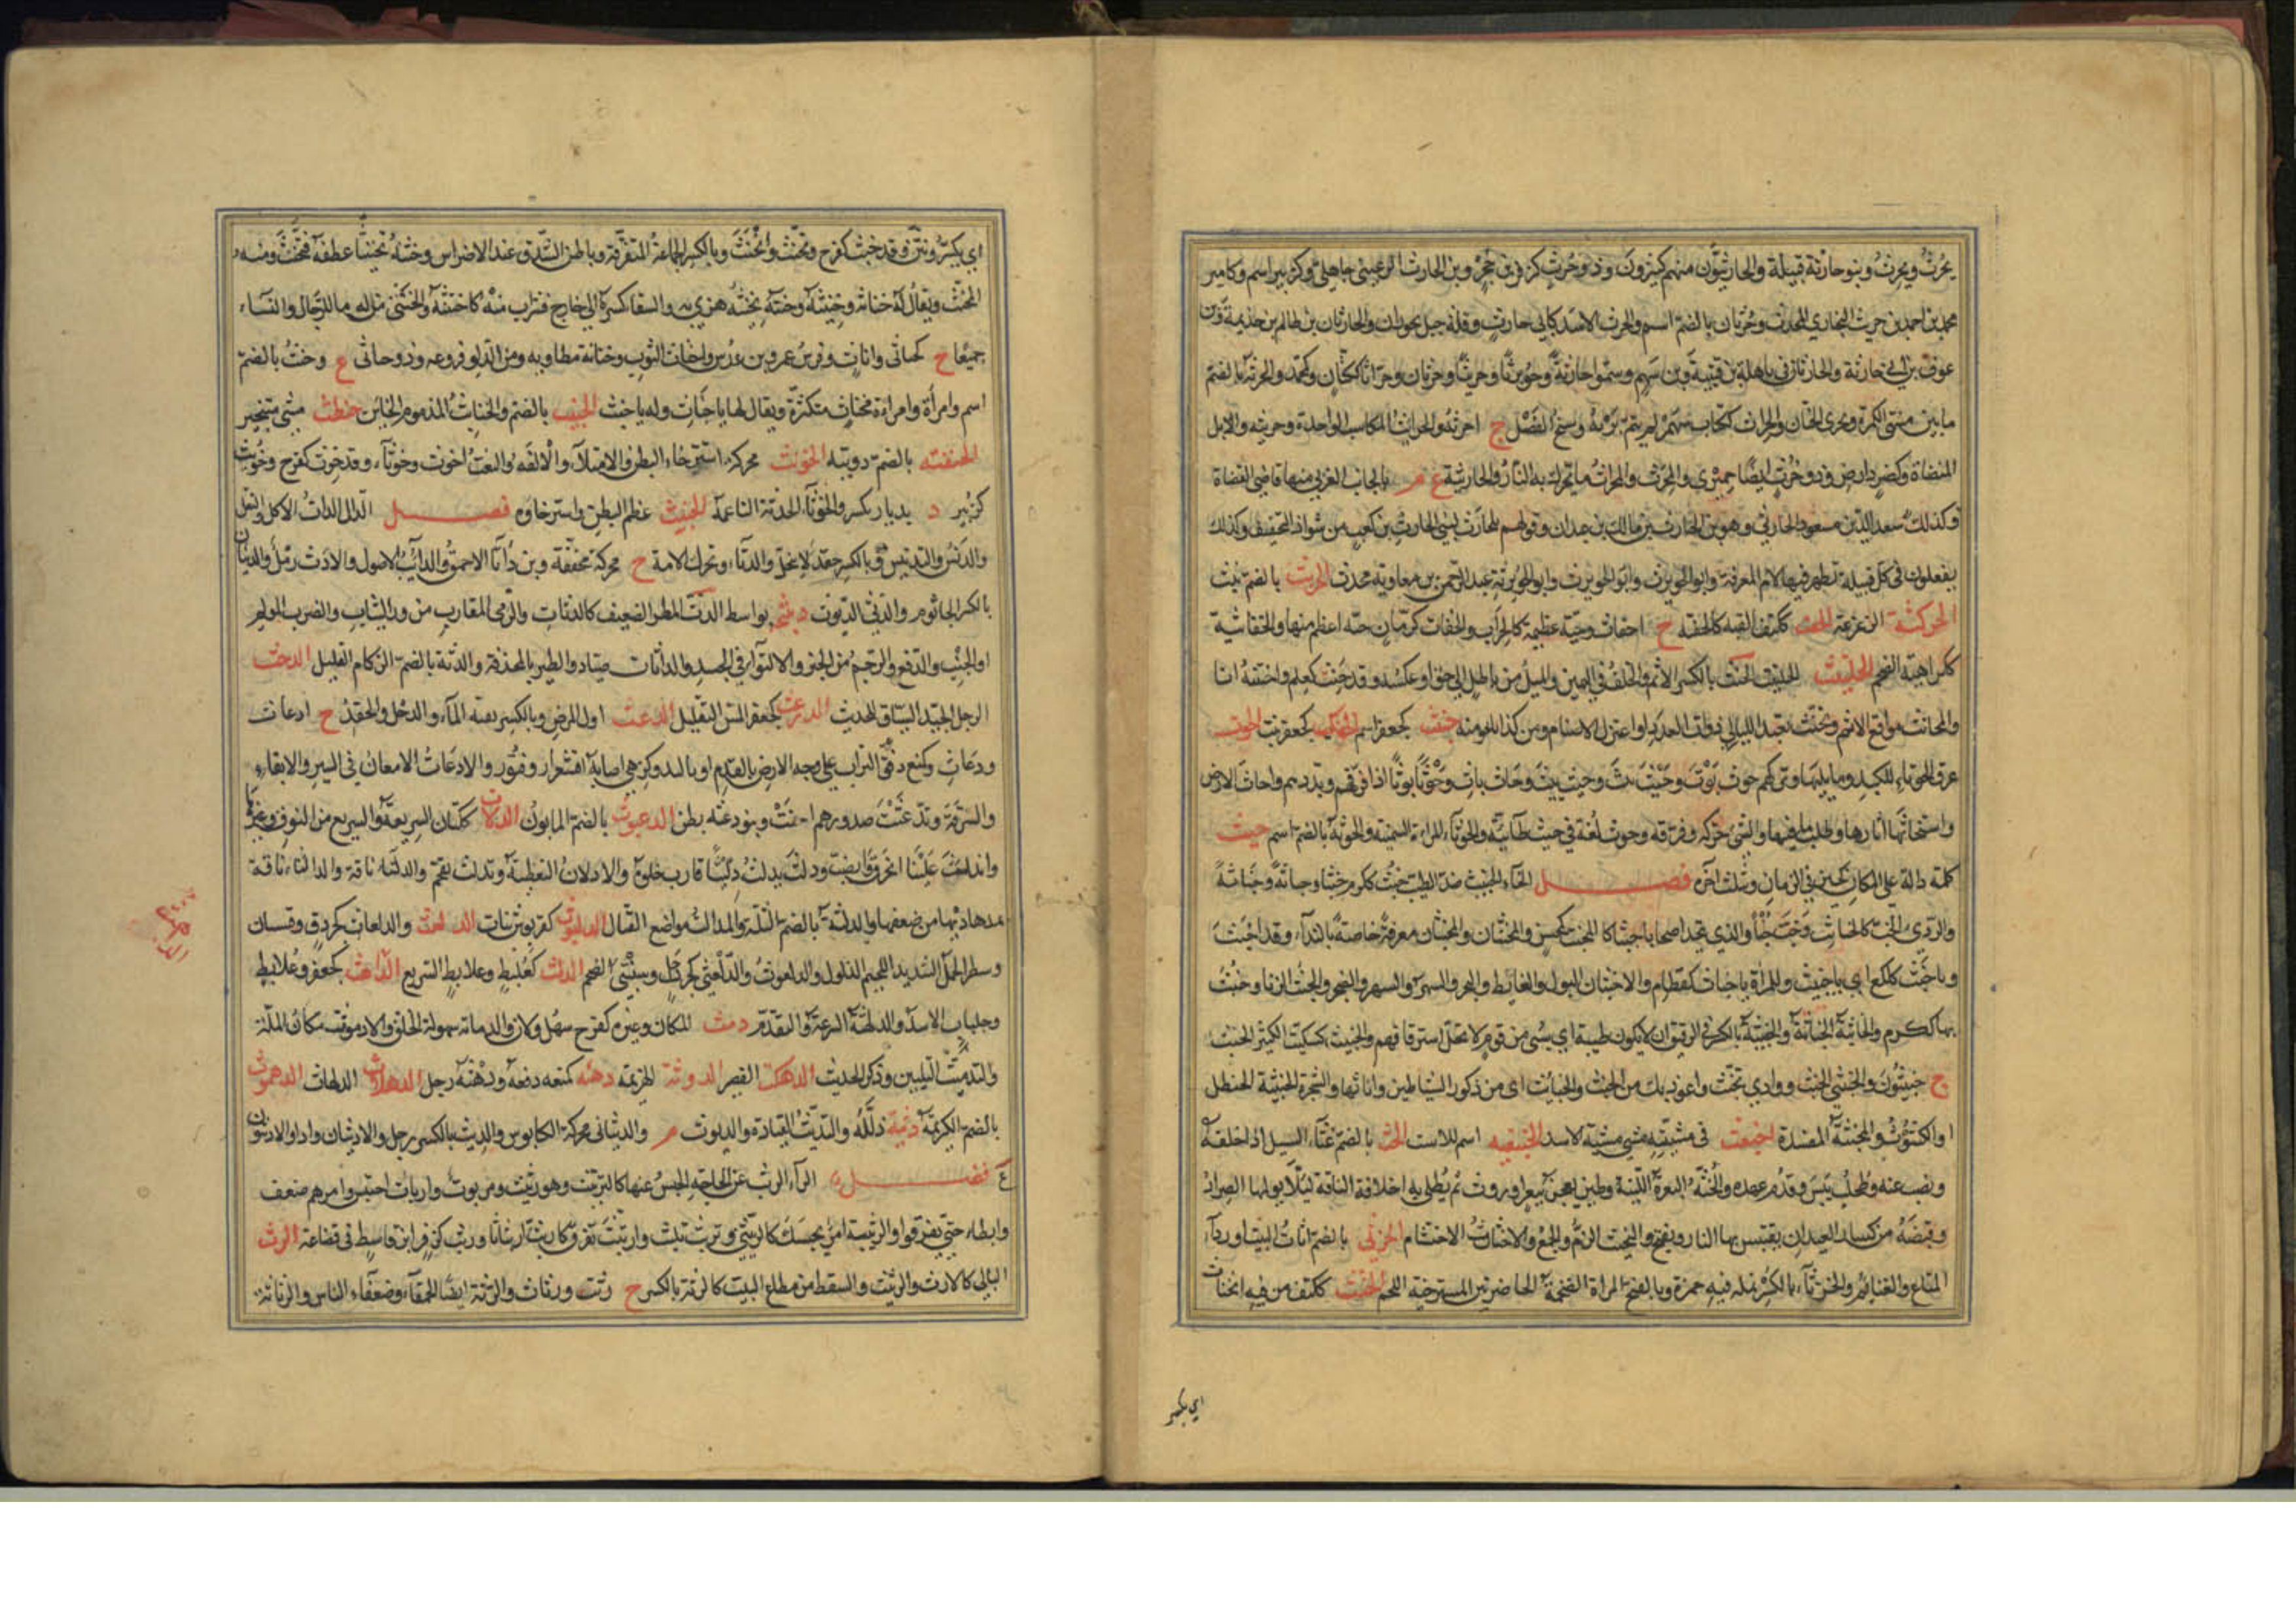 يحرث ويحرث وبنو حارثة قبيلة والحارثيون منهم كثيرون وذو حرث كزفر بن حجر وبن الحارث الرعيني جاهلي وكزبير اسم وكامير
محمد بن احمد بن حريث البخاري المحدث وحرثان بالضم اسم والحرث الاسد كابي حارث وقلة جبل بحوران والحارثان بن ظالم بن جذيمة وبن
عوف بن ابي حارثة والحارثان في باهلة بن قتيبة وبن سهم وسموا حارثة وحويرثا وحريثا وحرثان وحراثا ككتان وكمحمد والحرثة بالضم
ما بين منتهى الكمرة ومجرى الختان والحراث ككتاب سهم لم يتم بريه وسنخ النصل ج احرثة والحرائث المكاسب الواحدة وحريثه والابل
المنضاة وكصرد ارض وذو حرث ايضا حميري والمحرث والمحراث ما يحرك به النار والحارثية ع م بالجانب الغربي منها قاضي القضاة
وكذلك سعد الدين مسعود الحارثي وهو بن الحارث بن مالك بن عبدان وقولهم بلحارث لبني الحارث بن كعب من شواذ التخفيف وكذلك
يفعلون في كل قبيلة تظهر فيها لام المعرفة وابو الحويرث وابو الحويرث وابو الحويرثة عبد الرحمن بن معاوية محدث الحربث بالضم نبت
الحركثة الزعزعة الحفث ككتف القبة كالحفثه ج احفاث وحية عظيمة كالجراب والحفاث كرمان حية اعظم منها والحفاثية
ككراهية الضخم الحلتيث الحلتيت الحنث بالكسر الاثم والخلف في اليمين والميل من باطل الى حق او عكسه وقد حنث كعلم واحنثته انا
والمحانث مواقع الاثم وتحنث تعبد الليالي ذوات العدد او اعتزل الاصنام ومن كذا تاثم منه حنبث كجعفر اسم الحنكث كجعفر نبت الحوث
عرق الحوثاء للكبد وما يليها وتركهم حوث بوث وحيث بيث وحيث بيث وحاث باث وحوثا بوثا اذا فرقهم وبددهم واحاث الارض
واستحاثها اثارها وطلب ما فيها والشئ حركه وفرقه وحوث لغة في حيث طائية والحوثاء المراة السمينة والحوثة بالضم اسم حيث
كلمة دالة على المكان كحين في الزمان ويثلث آخره فصل الخاء الخبيث ضد الطيب خبث ككرم خبثا وخباثة وخباثية
والردئ الخب كالخابث وخبث خبثا والذي يتخذ اصحابا خبثا كالمخبث كمحسن والمخبثان والمخبثان معرفة خاصة بالنداء وقد اخبث
ويا خبث كلكع اي يا خبيث وللمراة يا خباث كقطام والاخبثان البول والغائط والبخر والسهر والسهر والضجر والخبث الزنا وخبث
بها ككرم والخابثة الخباثة والخبثة بالكسر في الرقيق ان لا يكون طيبة اي سبي من قوم لا يحل استرقاقهم والخبيث كسكيت الكثير الخبث
ج خبيثون والخبيثى الخبث ووادي تخبث واعوذ بك من الخبث والخبائث اي من ذكور الشياطين واناثها والشجرة الخبيثة الحنظل
او الكشوث والمخبثة المفسدة اخبعث في مشيته مشى مشية الاسد الخنبعثه اسم للاست الخث بالضم غثاء السيل اذا خلفه
ونضب عنه وطحلب يبس وقدم عهده والخثة البعرة اللينة وطين يعجن ببعر او روث ثم يطلى به اخلاف الناقة ليلا يولمها الصرار
وقبضة من كسار العيدان يقتبس بها النار ويفتح والتخثيث الرم والجمع والاختثاث الاحتشام الخرثى بالضم اثاث البيت او ردآء
المتاع والغنائم والخرثاء بالكسر نملة فيه حمرة وبالفتح المراة الضخمة الخاصرتين المسترخية اللحم الخنث ككتف من فيه انخناث
اي يكسر
اي يكسر وتثن وقد خنث كفرح وتخنث وانخنث وبالكسر الجماعة المتفرقة وباطن الشدق عند الاضراس وخنثه تخنيثا عطفه فتخنث ومنه
المخنث ويقال له خناثة وخنيثة وخنثه يخنثه هزئ به والسقا كسره الى خارج فشرب منه كاختنثه والخنثى من له ما للرجال والنساء
جميعا ح كحبالى واناث وفرس عمرو بن عدس واخناث الثوب وخناثه مطاويه ومن الدلو فروعه وذو خناثى ع وخنث بالضم
اسم وامرأة وامراة مخناث متكثرة ويقال لها يا خناث وله يا خنث الخنبث بالضم والخنابث المذموم الخاين خنطث مشى متبختر
الخنفثه بالضم دويبة الخوث محركه استرخاء البطن والامتلاء والالفة والنعت اخوث وخوثآء وقد خوث كفرح وخويث
كزبير د بديار بكر والخوثاء الحدثة الناعمة الخيث عظم البطن واسترخاوه فصل الدال الدأث الاكل والثقل
والدنس والتدنيس وبالكسر حقد لا ينحل والدأثاء وتحرك الامة ح محركة مخففة وبن دأثا الاحمق والدأئث الاصول والادأث رمل والدئثان
بالكسر الجاثوم والدئثي الديوث دبثى بواسط الدث المطر الضعيف كالدثاث والرمي المقارب من وراء الثياب والضرب المولم
او الجنب والدفع والرجم من الخبر والالتواء في الجسد والدثاث صياد والطير بالمخذفة والدثة بالضم الزكام القليل الدحث
الرجل الجيد السياق للحديث الدرعث كجعفر المسن الثقيل الدعث اول المرض وبالكسر بقية المآء والدخل والحقد ح ادعاث
ودعاث وكمنع دقق التراب على وجه الارض بالقدم او باليد وكزهي اصابه اقشعرار وفتور والادعاث الامعان في السير والابقاء
والسرقة وتدعثت صدورهم احنت وبنو دعثه بطن الدعبوث بالضم المابون الدلاث ككتاب السريعة والسريع من النوق وغيرها
واندلث علينا انخرق وانصب ودلث يدلث دليثا قارب خطوه والادلاث التغطية وتدلث تقحم والدلثاء ناقة
عدها ديها من ضعفها والدلثة بالضم الثلة والمدالث مواضع القتال الدلبوث كقربوس نبات الدلعث والدلعاث كجردق وقسان
وسطر الجمل الشديد اللحيم الذلول والدلعوث والدلعثى كجردحل وسبنتى الضخم الدلمث كعلبط وعلابط السريع الدلهث كجعفر وعلابط
وجلباب الاسد والدلهثة السرعة والتقدم دمث المكان وغيره كفرح سهل ولان والدماثة سهولة الخلق والادموث مكان الملة
والتدميث التليين وذكر الحديث الدهكث القصير الدوثة الهزيمة دهثه كمنعه دفعه ودهثة رجل الدهلاث الدلهاث الدهموث
بالضم الكريم ديثه ذلله والتديث القيادة والديوث م والديثاني محركة الكابوس والديث بالكسر رجل والاديثان واد او الاديثون
ع فصل الرآء الربث عن الحاجة الحبس عنها كالتربيث وهو ربيث ومربوث واربأث احتبس وامرهم ضعف
وابطاء حتى تفرقوا والربيثة امر يحبسك كالربيثى وتربث تلبث وارتبث تفرق كاربث اربثاثا وربث كزفر ابن قاسط في قضاعة الرث
البالي كالارث والرثيث والسقط من متاع البيت كالرثة بالكسر ح رثث ورثاث والرثة ايضا الحمقاء وضعفاء الناس والرثاثة